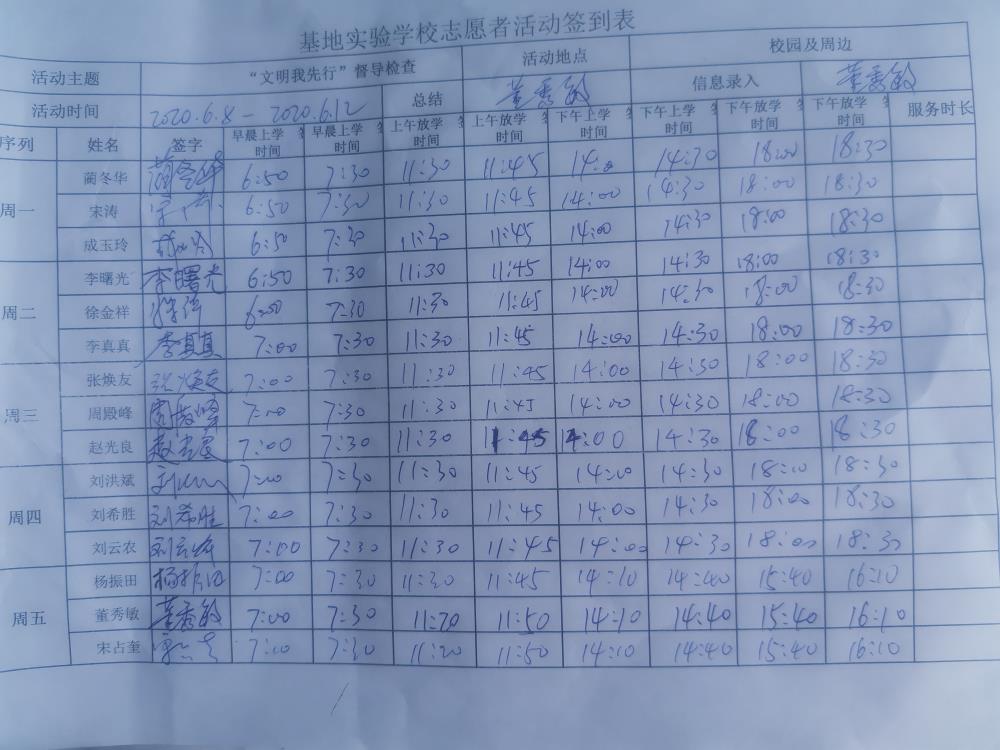 基地实验学校志愿者活动签到表
活动主题 “文明我先行”督导检查 活动地点 校园及周边
活动时间 2020.6.8 - 2020.6.12 总结 董秀敏 信息录入 董秀敏
序列 姓名 签字 早晨上学 签时间 早晨上学 签时间 上午放学 签时间 上午放学 签时间 下午上学 签时间 下午上学 签时间 下午放学 签时间 下午放学 签时间 服务时长
周一 蔺冬华 蔺冬华 6:50 7:30 11:30 11:45 14:00 14:30 18:00 18:30
宋涛 宋涛 6:50 7:30 11:30 11:45 14:00 14:30 18:00 18:30
成玉玲 6:50 7:30 11:30 11:45 14:00 14:30 18:00 18:30
周二 李曙光 李曙光 6:50 7:30 11:30 11:45 14:00 14:30 18:00 18:30
徐金祥 6:50 7:30 11:30 11:45 14:00 14:30 18:00 18:30
李真真 李真真 7:00 7:30 11:30 11:45 14:00 14:30 18:00 18:30
周三 张焕友 张焕友 7:00 7:30 11:30 11:45 14:00 14:30 18:00 18:30
周殿峰 周殿峰 7:00 7:30 11:30 11:45 14:00 14:30 18:00 18:30
赵光良 赵光良 7:00 7:30 11:30 11:45 14:00 14:30 18:00 18:30
周四 刘洪斌 7:00 7:30 11:30 11:45 14:00 14:30 18:00 18:30
刘希胜 刘希胜 7:00 7:30 11:30 11:45 14:00 14:30 18:00 18:30
刘云农 刘云农 7:00 7:30 11:30 11:45 14:00 14:30 18:00 18:30
周五 杨振田 杨振田 7:00 7:30 11:20 11:45 14:10 14:40 15:40 16:10
董秀敏 董秀敏 7:00 7:30 11:20 11:50 14:10 14:40 15:40 16:10
宋占奎 7:00 7:30 11:20 11:50 14:10 14:40 15:40 16:10